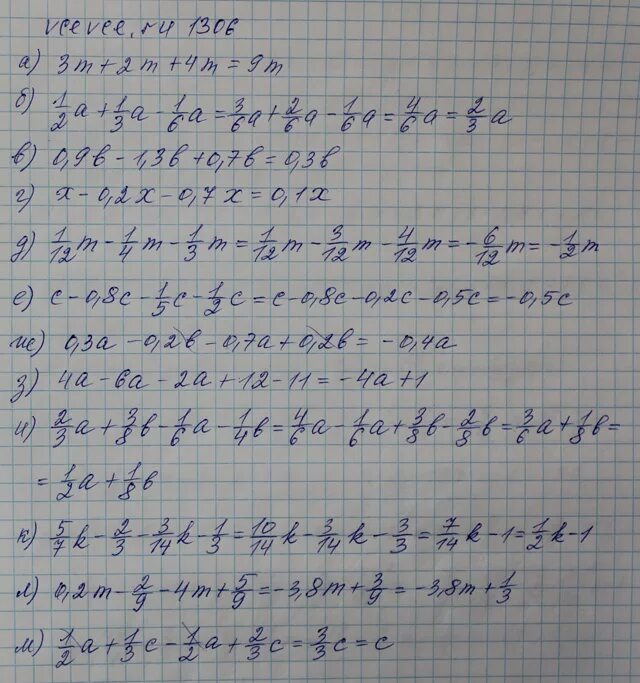 vcevce.ru 1306
а) 3m + 2m + 4m = 9m
б) 1/2 a + 1/3 a - 1/6 a = 3/6 a + 2/6 a - 1/6 a = 4/6 a = 2/3 a
в) 0,9в - 1,3в + 0,7в = 0,3в
г) x - 0,2x - 0,7x = 0,1x
д) 1/12 m - 1/4 m - 1/3 m = 1/12 m - 3/12 m - 4/12 m = - 6/12 m = - 1/2 m
е) c - 0,8c - 1/5 c - 1/2 c = c - 0,8c - 0,2c - 0,5c = -0,5c
ж) 0,3a - 0,2в - 0,7a + 0,2в = -0,4a
з) 4a - 6a - 2a + 12 - 11 = -4a + 1
и) 2/3 a + 3/8 в - 1/6 a - 1/4 в = 4/6 a - 1/6 a + 3/8 в - 2/8 в = 3/6 a + 1/8 в =
= 1/2 a + 1/8 в
к) 5/7 k - 2/3 - 3/14 k - 1/3 = 10/14 k - 3/14 k - 3/3 = 7/14 k - 1 = 1/2 k - 1
л) 0,2m - 2/9 - 4m + 5/9 = -3,8m + 3/9 = -3,8m + 1/3
м) 1/2 a + 1/3 c - 1/2 a + 2/3 c = 3/3 c = c